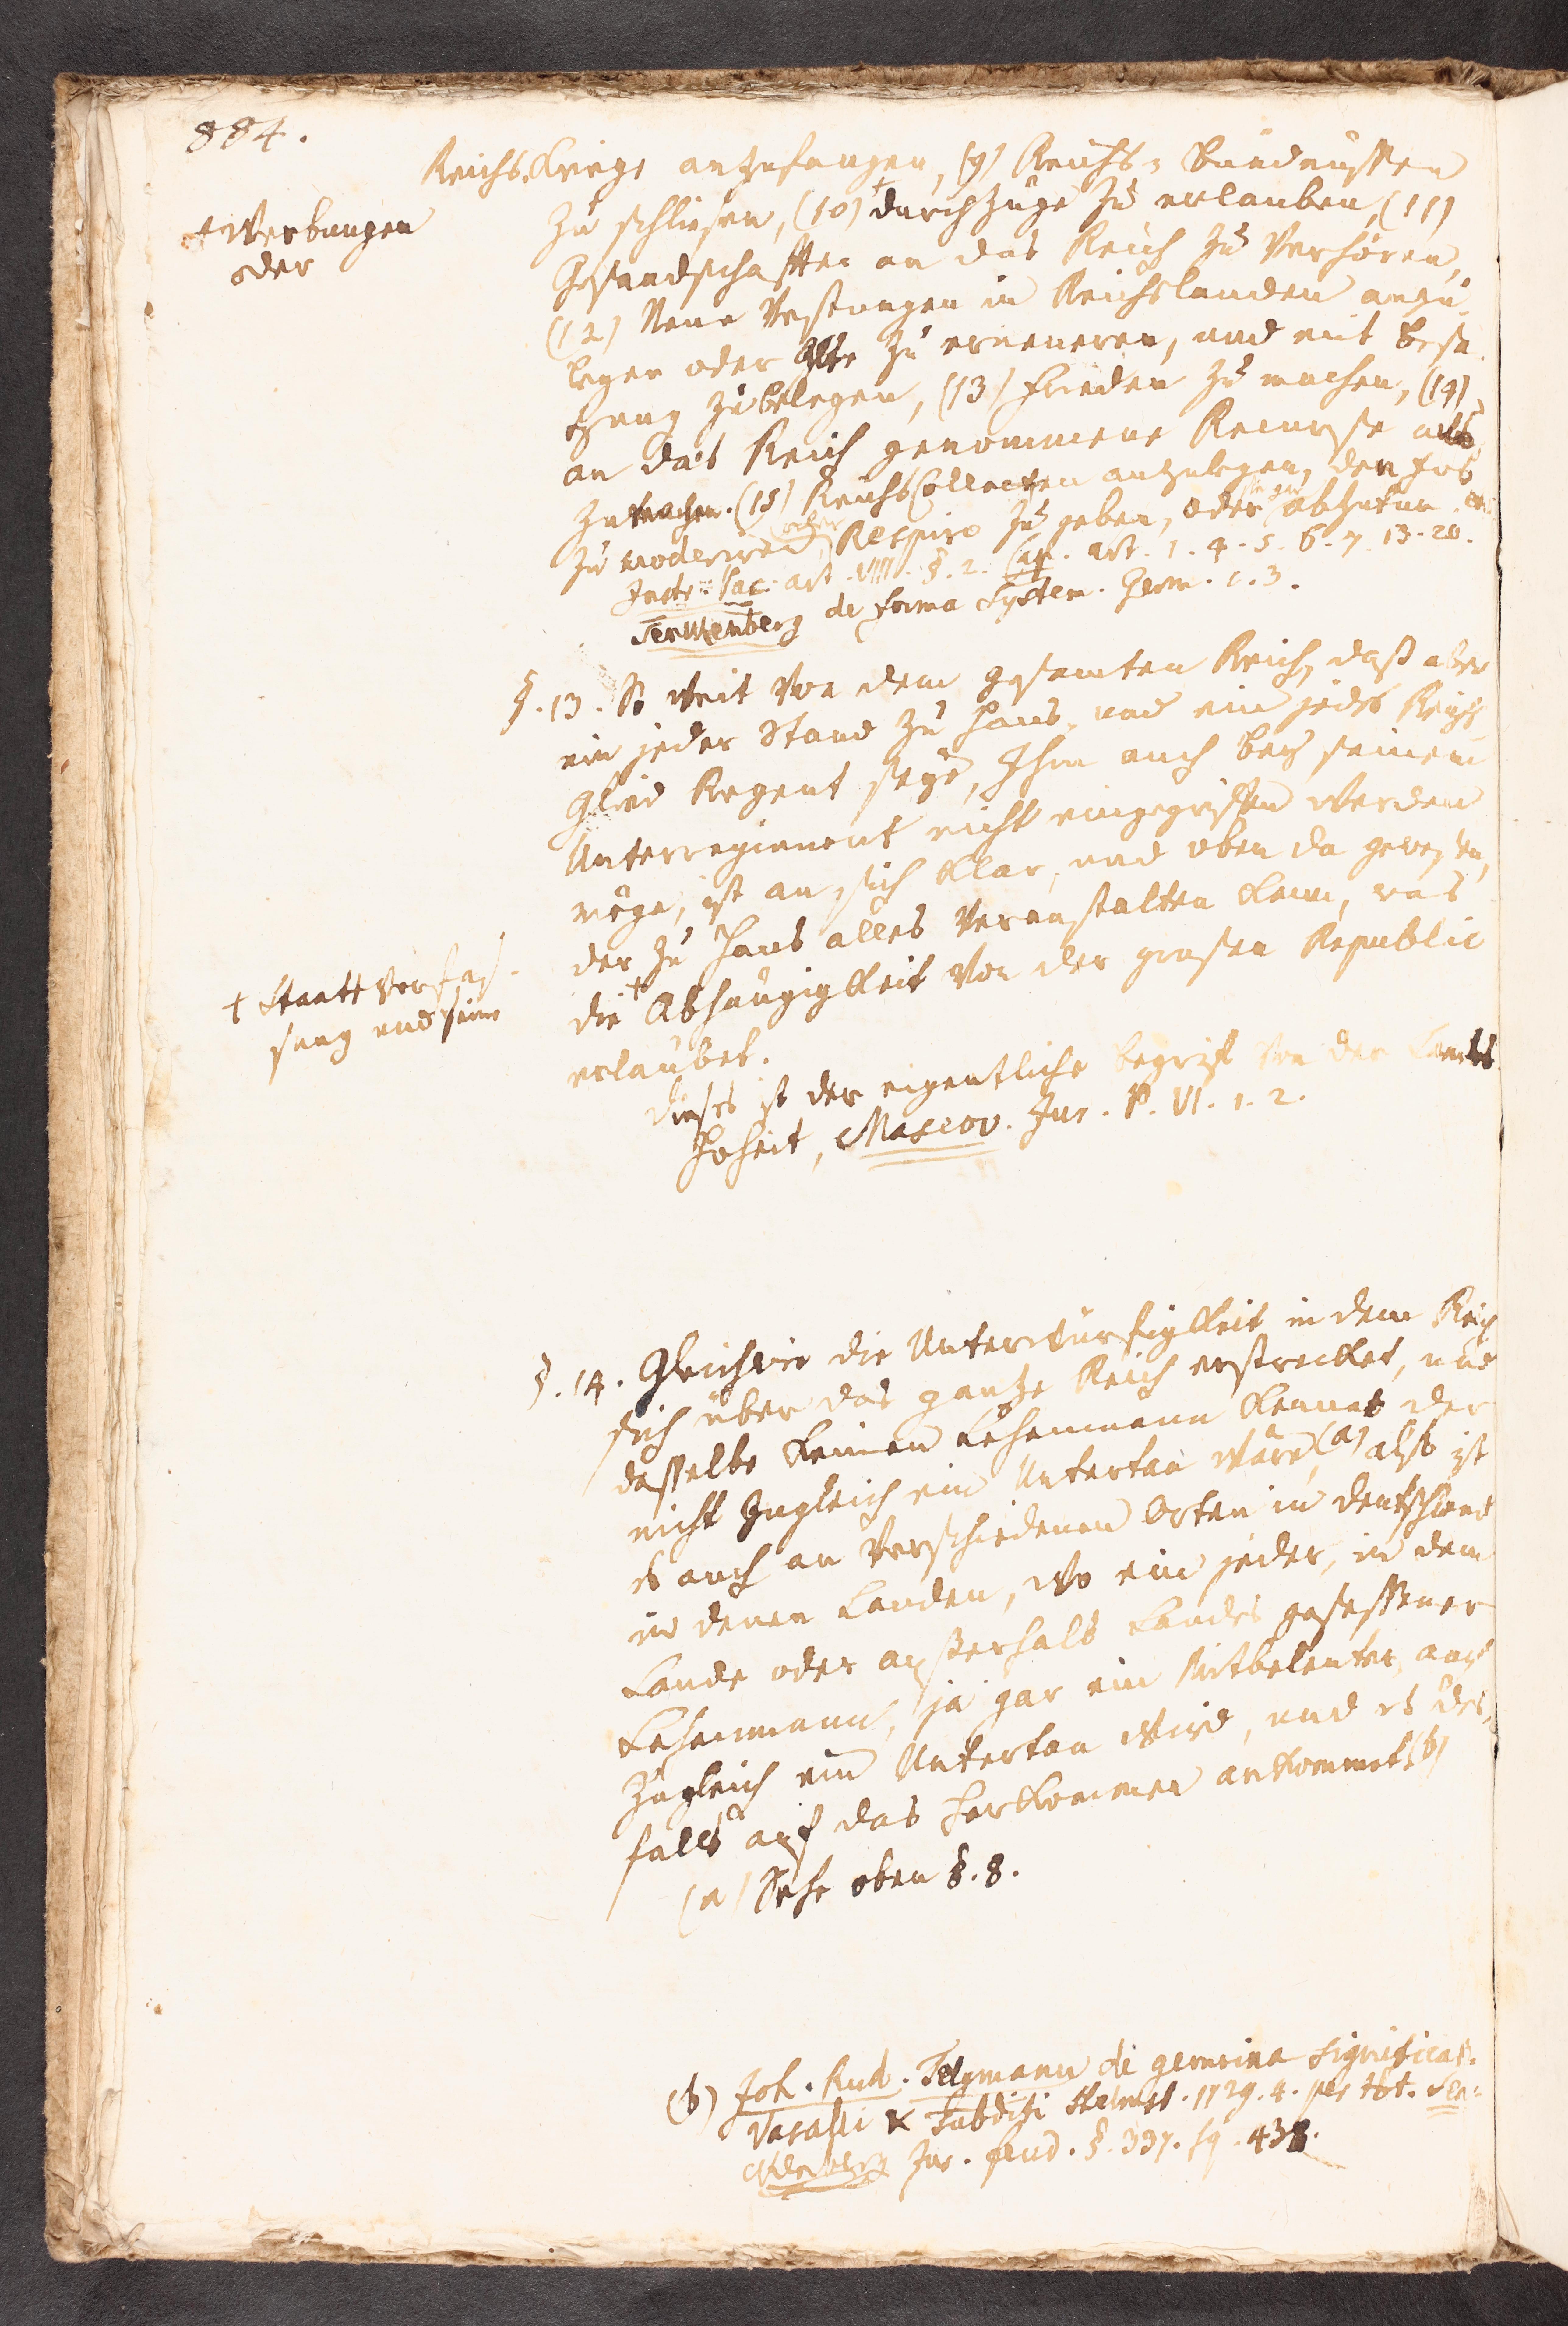 884.
Reichs Kriege anzufangen, (9) Reichs- Bündnussen
† Werbungen
oder
zu schliesen, (10) † durchzüge zu erlauben, (11)
Gesandschafften an das Reich zu Verhören,
(12) Neue Vestungen in Reichslanden anzu-
legen oder Alte zu erneueren, und mit Besa-
tzung zu belegen, (13) Frieden zu machen, (14)
an das Reich genommene Recurse aus
zumachen. (15) Reichs Collecten anzulegen, den Fus
zu moderiren, oder Respiro zu geben, oder abzutun.
Instr. Pac. art. VIII. §. 2. Cap. art. 1. 4. 5. 6. 7. 13. 20.
Senckenberg de forma System. Germ. c. 3.
§. 13. So weit von dem gesamten Reich, daß aber
ein jeder Stand zu Haus, und ein jedes Reichs
Glied Regent seye, Ihm auch bey seinem
Unterregiment nicht eingegriffen werden
möge, ist an sich klar, und oben da gewesen,
der zu Haus alles Veranstalten kann, was
die † Abhängigkeit von der grosen Republic
† Staats Verfas-
sung und seine
erlaubet.
dieses ist der eigentliche begrif von der Landes
Hoheit, Mascov. Jur. P. VI. 1. 2.
§. 14. Gleichwie die Unterwürfigkeit in dem Reich
sich über das gantze Reich erstrecket, und
dasselbe keinen Lehenmann kennet der
nicht zugleich ein Untertan wäre, (a) also ist
es auch an verschiedenen Orten in Deutschland
in denen Landen, wo ein jeder, in dem
Lande oder ausserhalb Landes gesessener
Lehenmann, ja gar ein Mitbelenter, auch
zugleich ein Untertan wird, und es des-
falls auf das Herkommen ankommet (b)
(a) Sehe oben §. 8.
(b) Joh. Rud. Telgmann de genuina significat.
Vasalli & Subditi Helmst. 1729. 4. per tot. Sen-
ckenberg Jur. feud. §. 337. sq. 438.